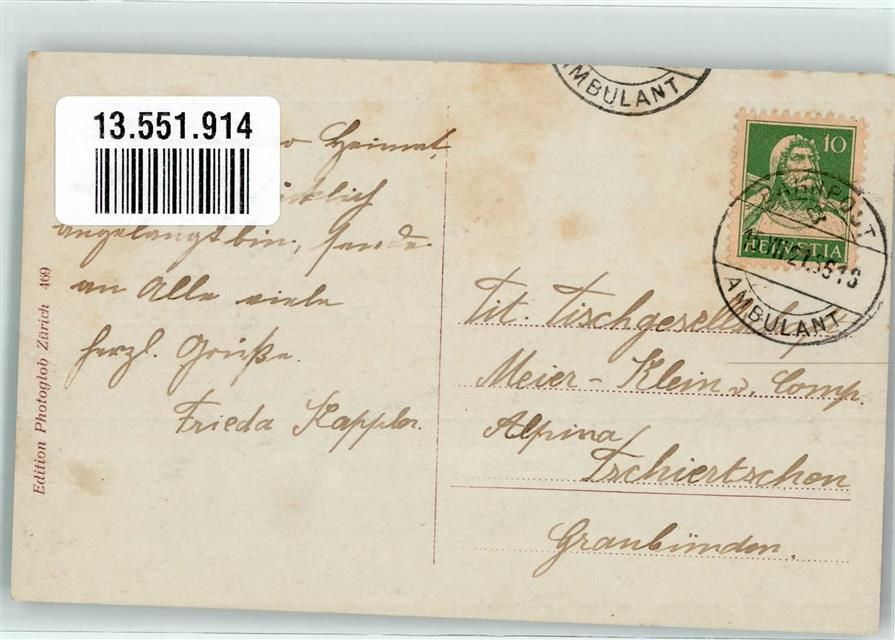 AMBULANT
13.551.914
Heimat,
angelangt bin, sende
an Alle viele
herzl. Grüße.
Frieda Kappler
Edition Photoglob Zürich 469
10
HELVETIA
BAHNPOST
AMBULANT
Tit. Tischgesellschaft
Meier - Klein u. Comp.
Alpina
Tschiertschen
Graubünden.